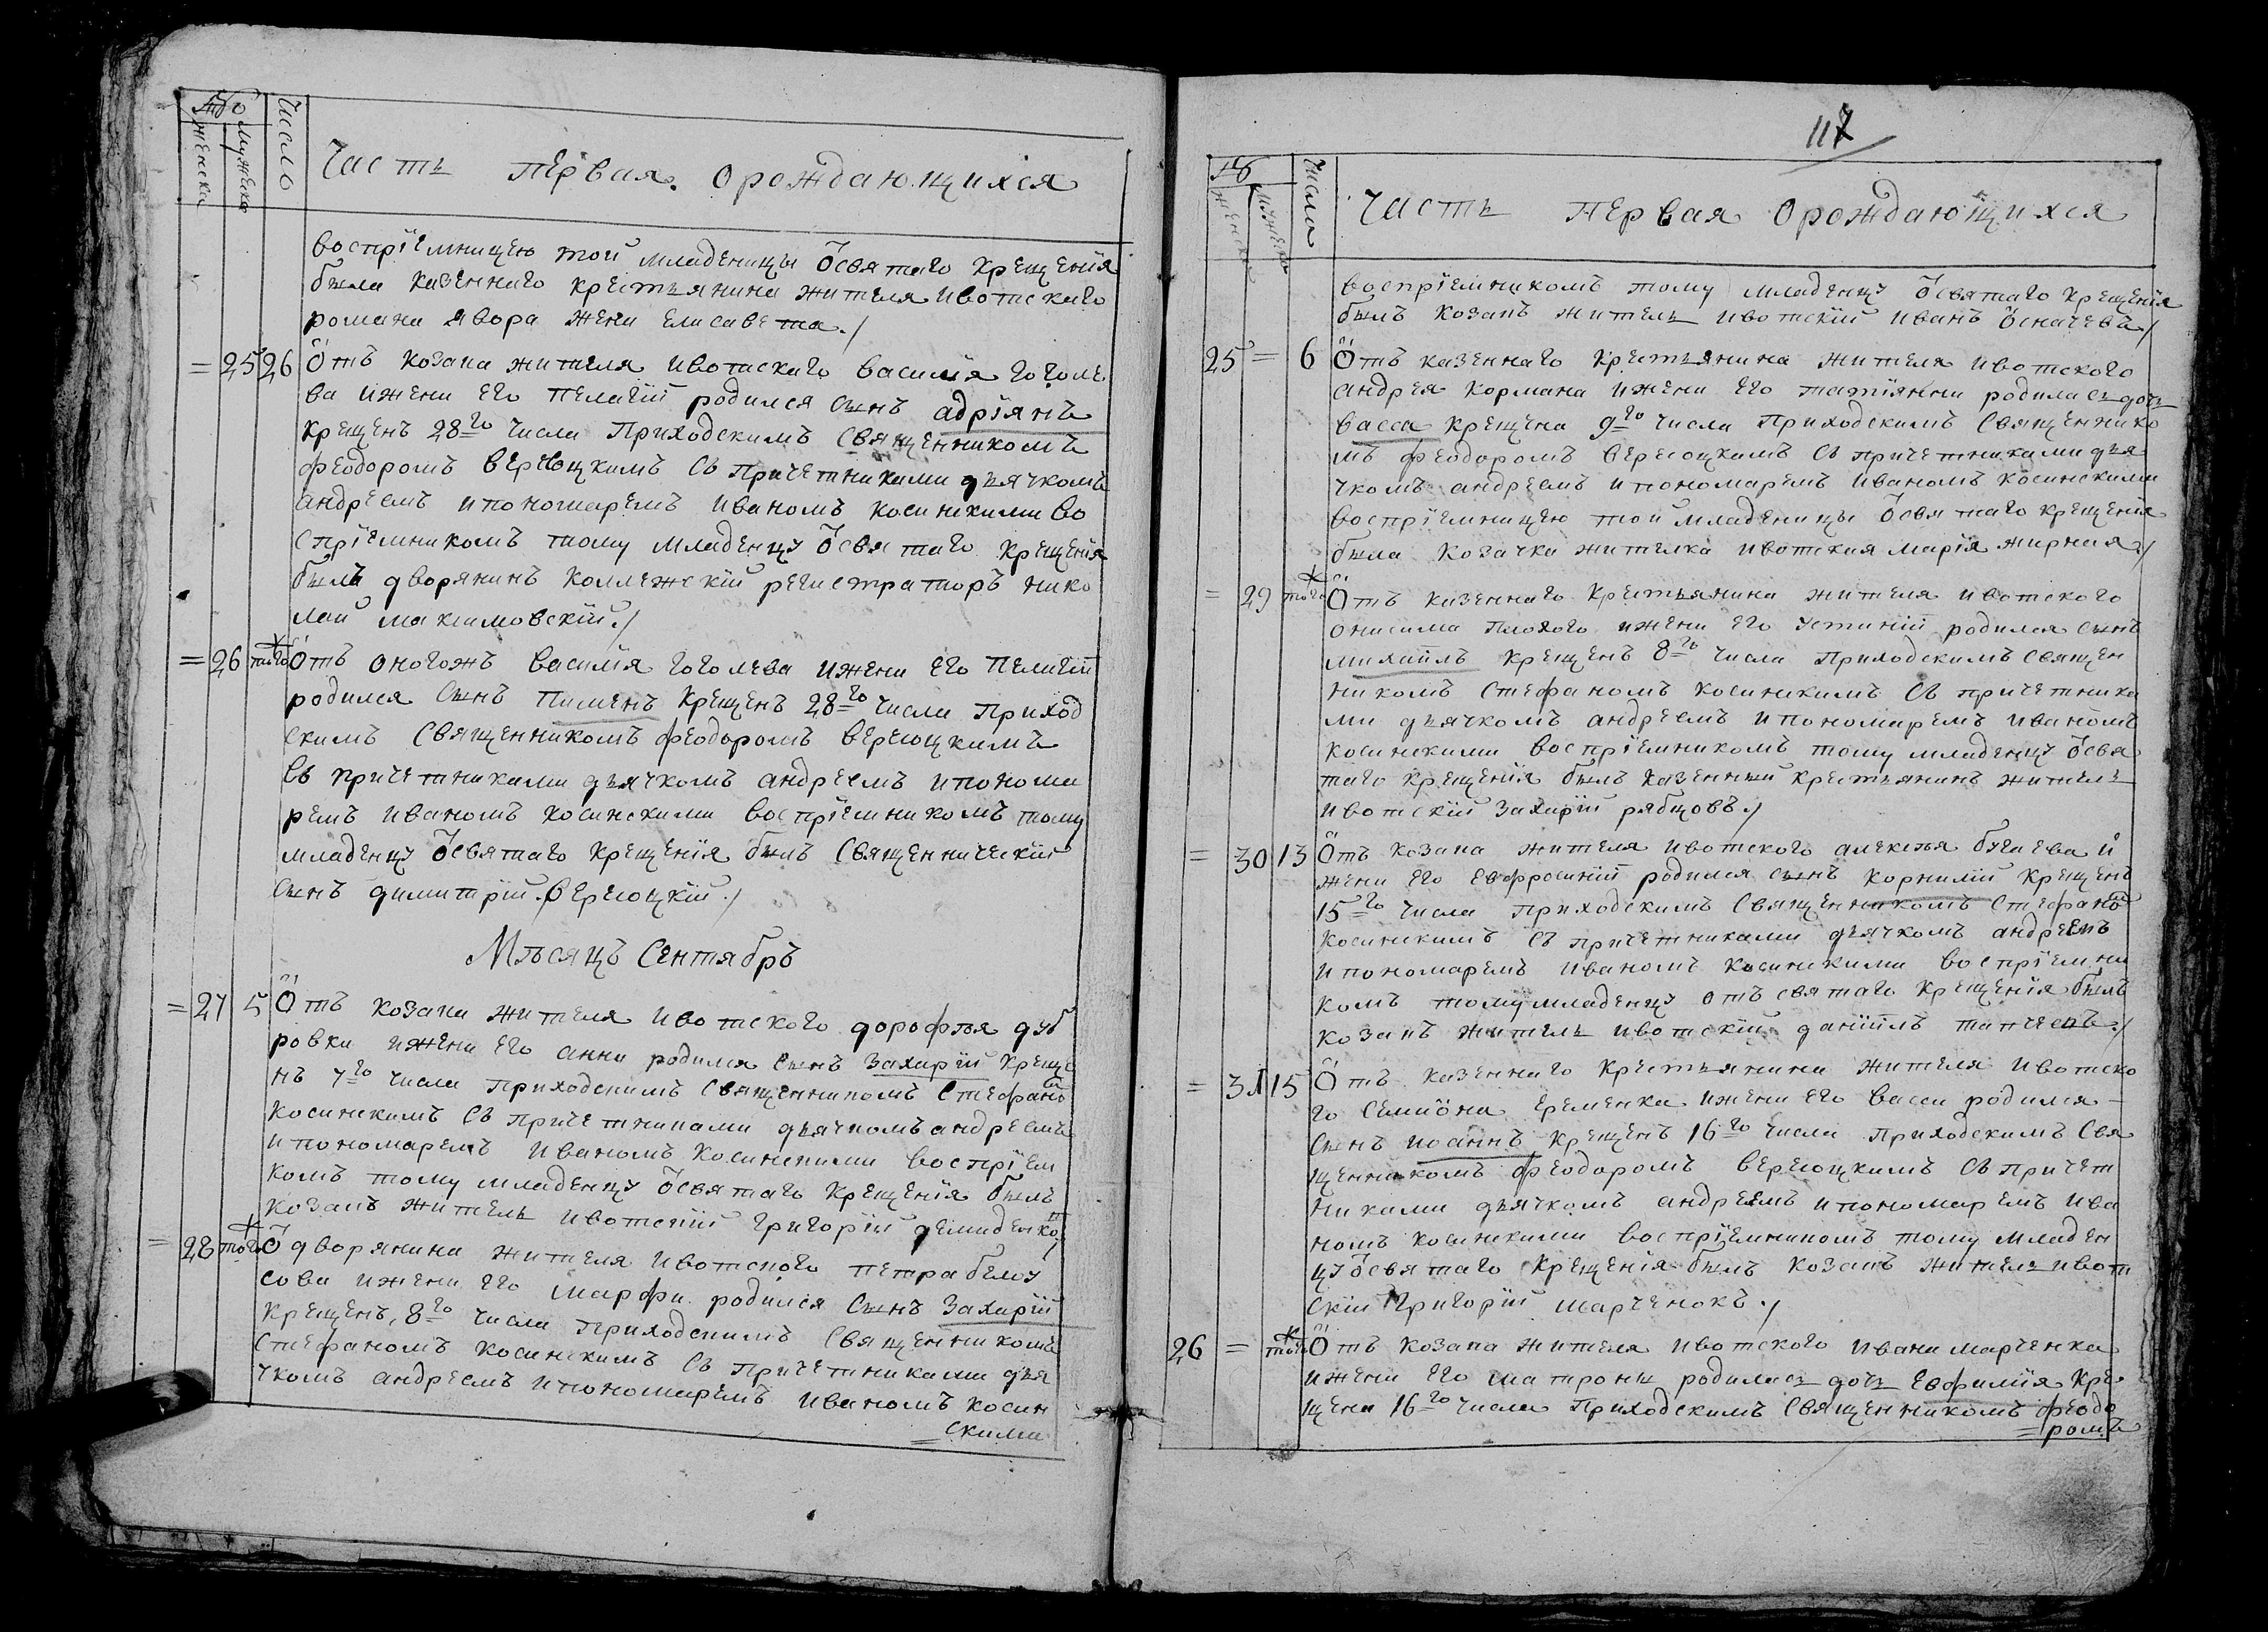 Число
женска
мужеска
Часть первая. о рождающихся
воспріемницею той младеницы ѿ святаго крещенія
была казеннаго крестьянина жителя ивотскаго
романа явора жена елисавета./
= 25 26 Ѿтъ козака жителя ивотскаго василія гоголе
ва и жены его пелагіи родился сынъ адріянъ
крещенъ 28го числа приходскимъ священникомъ
феодоромъ верещкимъ съ причетниками дьячкомъ
андреемъ и пономаремъ иваномъ косинскими во
спріемникомъ тому младенцу ѿ святаго крещенія
былъ дворянинъ коллежскій регистраторъ нико
лай максимовскій./
= 26 тогож Ѿтъ оногожъ василія гоголева и жены его пелагіи
родился сынъ пименъ крещенъ 28го числа приход
скимъ священникомъ феодоромъ верещкимъ
съ причетниками дьячкомъ андреемъ и понома
ремъ иваномъ косинскими воспріемникомъ тому
младенцу ѿ святаго крещенія былъ священническій
сынъ димитрій верещкій./
Мѣсяцъ Сентябрь
= 27 5 Ѿтъ козака жителя ивотского дорофѣя дуб
ровки и жены его анны родился сынъ захарій креще
нъ 7го числа приходскимъ священникомъ стефаномъ
косинскимъ съ причетниками дьячкомъ андреемъ
и пономаремъ иваномъ косинскими воспріемни
комъ тому младенцу ѿ святаго крещенія былъ
козакъ житель ивотскій григорій демиденко./
= 28 тогож Ѿ дворянина жителя ивотского петра белоу
сова и жены его марфы родился сынъ захарій
крещенъ 8го числа приходскимъ священникомъ
стефаномъ косинскимъ съ причетниками дья
чкомъ андреемъ и пономаремъ иваномъ косин
= скими
117
Число
женска
мужеска
Часть первая о рождающихся
воспріемникомъ тому младенцу ѿ святаго крещенія
былъ козакъ житель ивотскій иванъ осначевъ./
25 = 6 Ѿтъ казеннаго крестьянина жителя ивотского
андрея кормана и жены его татіянны родилась дочь
васса крещена 9го числа приходскимъ священнико
мъ феодоромъ верещкимъ съ причетниками дья
чкомъ андреемъ и пономаремъ иваномъ косинскими
воспріемницею той младеницы ѿ святаго крещенія
была козачка жителка ивотская марія жирная./
= 29 тогож Ѿтъ казеннаго крестьянина жителя ивотского
онисима плохого и жены его устиніи родился сынъ
михаилъ крещенъ 8го числа приходскимъ священ
никомъ стефаномъ косинскимъ съ причетника
ми дьячкомъ андреемъ и пономаремъ иваномъ
косинскими воспріемникомъ тому младенцу ѿ свя
таго крещенія былъ казенный крестьянинъ житель
ивотскій захарій рябцовъ./
= 30 13 Ѿтъ козака жителя ивотского алексѣя бугаева и
жены его евфросиніи родился сынъ корнилій крещенъ
15го числа приходскимъ священникомъ стефаномъ
косинскимъ съ причетниками дьячкомъ андреемъ
и пономаремъ иваномъ косинскими воспріемни
комъ тому младенцу отъ святаго крещенія былъ
козакъ житель ивотскій даніилъ
= 31 15 Ѿтъ казеннаго крестьянина жителя ивотско
го семіона еременка и жены его вассы родился
сынъ иоаннъ крещенъ 16го числа приходскимъ свя
щенникомъ феодоромъ верещкимъ съ причет
никами дьячкомъ андреемъ и пономаремъ ива
номъ косинскими воспріемникомъ тому младен
цу ѿ святаго крещенія былъ козакъ житель ивот
скій григорій марченокъ./
26 = тогож Ѿтъ козака жителя ивотского ивана марченка
и жены его матроны родилась дочь евфимія кре
щена 16го числа приходскимъ священникомъ феодо
= ромъ